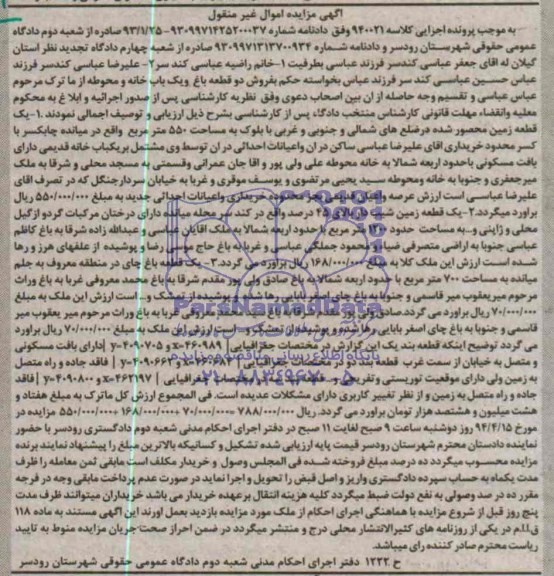 آگهی مزایده اموال غیر منقول
به موجب پرونده اجرایی کلاسه ۹۴۰۰۲۱ وفق دادنامه شماره ۹۳۰۹۹۷۱۴۲۵۲۰۰۰۳۷-۹۳/۱/۲۵ صادره از شعبه دوم دادگاه
عمومی حقوقی شهرستان رودسر و دادنامه شماره ۹۳۰۹۹۷۱۳۱۳۷۰۰۹۳۴ صادره از شعبه چهارم دادگاه تجدید نظر استان
گیلان له اقای جعفر عباسی کندسر فرزند عباسی بطرفیت ۱-خانم راضیه عباسی کند سر ۲- علیرضا عباسی کندسر فرزند
عباس حسین عباسی کند سر فرزند عباس بخواسته حکم بفروش دو قطعه باغ ویک باب خانه و محوطه از ما ترک مرحوم
عباس عباسی و تقسیم وجه حاصله از ان بین اصحاب دعوی وفق نظریه کارشناسی پس از صدور اجرائیه و ابلاغ به محکوم
معلیه وانقضاء مهلت قانونی کارشناس منتخب دادگاه پس از کارشناسی بشرح ذیل ارزیابی و توصیف اجمالی نمودند .۱-یک
قطعه زمین محصور شده درضلع های شمالی و جنوبی و غربی با بلوک به مساحت ۵۵۰ متر مربع واقع در میانده چابکسر با
کسر محدود خریداری اقای علیرضا عباسی ساکن در ان واعیانات احداثی در ان توسط وی مشتمل بریکباب خانه قدیمی دارای
بافت مسکونی باحدود اربعه شمالا به خانه محوطه علی ولی پور و اقا جان عمرانی وقسمتی به مسجد محلی و شرقا به ملک
میرجعفری و جنوبا به خانه ومحوطه سید یحیی مرتضوی و یوسف موقری و غربا به خیابان سردارجنگل که در تصرف اقای
علیرضا عباسی است ارزش عرصه و اعیان قدیمی بجز محدوده خریداری واعیانات احداثی جدید به مبلغ ۵۵۰/۰۰۰/۰۰۰ ریال
براورد میگردد.۲-یک قطعه زمین شیب دار بالای ۴۵ درصد واقع در کند سر محله میانده دارای درختان مرکبات گردو ازگیل
محلی و ژاپنی و...به مساحت حدود ۱۲۰۰ متر مربع با حدود اربعه شمالا به ملک اقایان عباسی و عبدالله زاده شرقا به باغ کاظم
عباسی جنوبا به اراضی متصرفی ضیا و محمود جملگی عباسی و غربا به باغ حاج موسی رضا و پوشیده از علفهای هرز و رها
شده است ارزش این ملک کلا به مبلغ ۱۶۸/۰۰۰/۰۰۰ ریال براورد می گردد.۳- یک قطعه باغ چای در منطقه معروف به جلم
میانده به مساحت ۷۰۰ متر مربع با حدود اربعه شمالا به باغ صادق ولی پور مقدم شرقا به باغ محمد معروفی غربا به باغ وراث
مرحوم میریعقوب میر قاسمی و جنوبا به باغ چای اصغر بابایی رها شده و پوشیده از تمشک و... است ارزش این ملک به مبلغ
۷۰/۰۰۰/۰۰۰ ریال براورد می گردد.
قاسمی و جنوبا به باغ چای اصغر بابایی رها شده و پوشیده از تمشک و... است ارزش این ملک به مبلغ ۷۰/۰۰۰/۰۰۰ ریال براورد
می گردد توضیح اینکه قطعه بند یک این گزارش در مختصات جغرافیایی | x=۴۶۰۹۸۹ و y=۴۰۹۰۷۰۵ |دارای بافت مسکونی
و متصل به خیابان از سمت غرب قطعه بند دو در مختصات جغرافیایی | و y=۴۰۹۰۶۶۲ | فاقد جاده و راه متصل
به زمین ولی دارای موقعیت توریستی وتفریحی و قطعه بند سه در مختصات جغرافیایی | x=۴۶۲۱۹۷ و y=۴۰۹۰۸۰۰ | فاقد
جاده و راه متصل به زمین و از نظر تغییر کاربری دارای مشکلات عدیده است. فی المجموع ارزش کل ماترک به مبلغ هفتاد و
هشت میلیون و هشتصد هزار تومان براورد می گردد. ریال ۷۸۸/۰۰۰/۰۰۰=۷۰/۰۰۰/۰۰۰+۱۶۸/۰۰۰/۰۰۰+۵۵۰/۰۰۰/۰۰۰ مزایده در
مورخ ۹۴/۴/۱۵ روز دوشنبه ساعت ۹ صبح لغایت ۱۱ صبح در دفتر اجرای احکام مدنی شعبه دوم دادگستری رودسر با حضور
نماینده دادستان محترم شهرستان رودسر قیمت پایه ارزیابی شده تشکیل و کسانیکه بالاترین مبلغ را پیشنهاد نمایند برنده
مزایده محسوب میگردد ده درصد مبلغ فروخته شده فی المجلس وصول و خریدار مکلف است مابقی ثمن معامله را ظرف
مدت یکماه به حساب سپرده دادگستری واریز و اصل قبض را تحویل و اجرا نماید در صورت عدم پرداخت مابقی وجه در فرجه
مقرر ده در صد وصولی به نفع دولت ضبط میگردد کلیه هزینه انتقال برعهده خریدار می باشد خریداران میتوانند ظرف مدت
پنج روز قبل از شروع مزایده با هماهنگی اجرای احکام از ملک مورد مزایده بازدید بعمل اورند این آگهی مستند به ماده ۱۱۸
ق.ا.م در یکی از روزنامه های کثیرالانتشار محلی درج و منتشر میگردد در ضمن احراز صحت جریان مزایده منوط به تایید
ریاست محترم صادر کننده رای میباشد.
ح ۱۲۲۲ دفتر اجرای احکام مدنی شعبه دوم دادگاه عمومی حقوقی شهرستان رودسر
ParsNamadData
۰۲۱-۸۸۳۴۹۶۷۰-۵